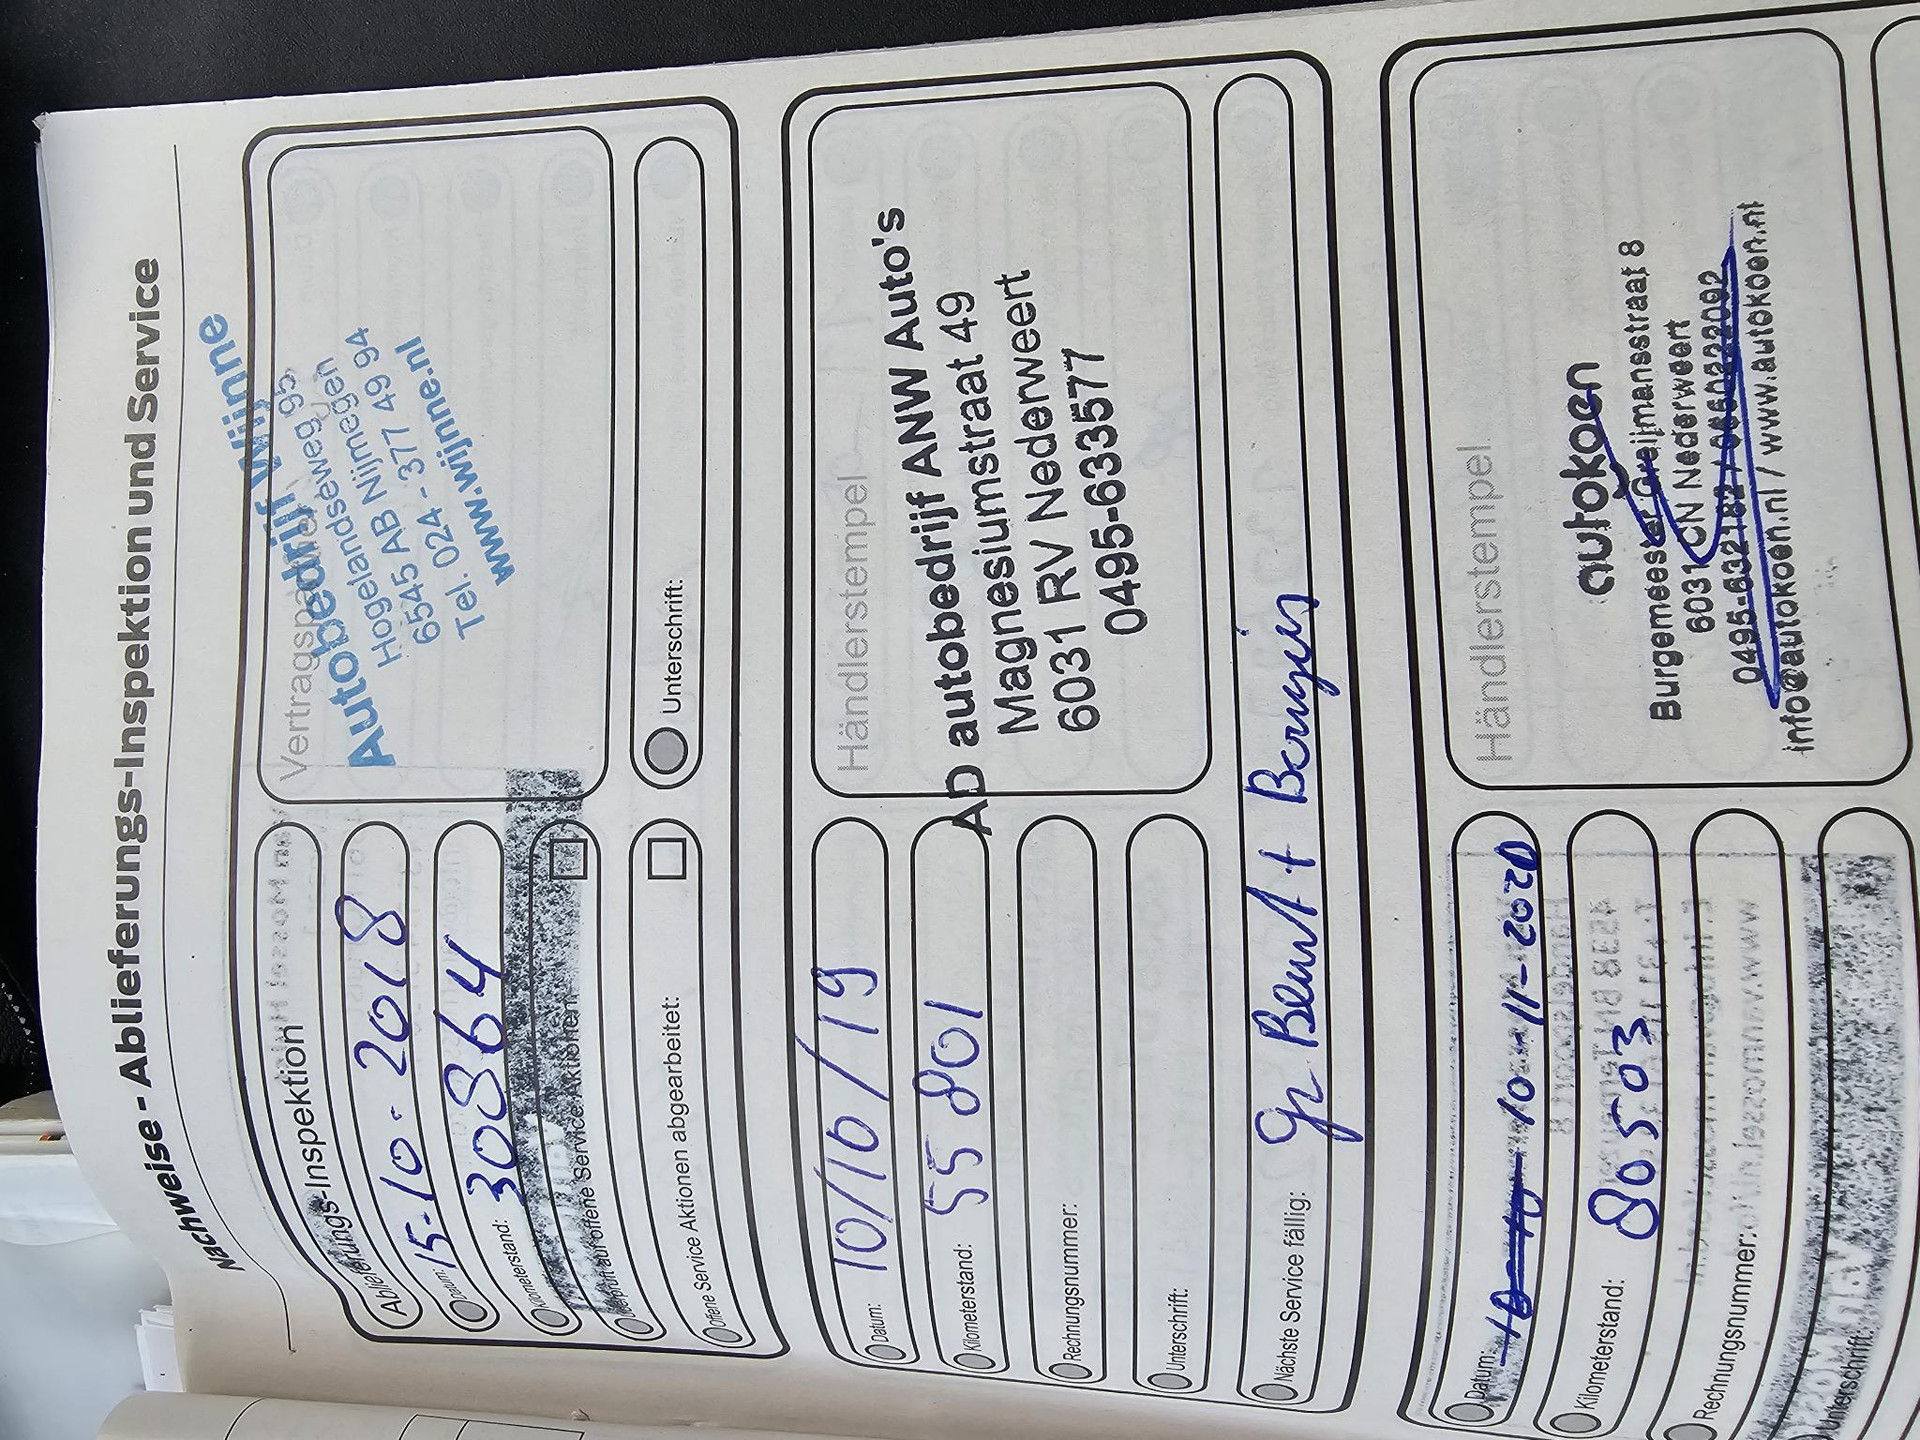 Nachweise - Ablieferungs-Inspektion und Service
Ablieferungs-Inspektion
Datum: 15-10-2018
Kilometerstand: 30864
Überprüft auf offene Service Aktionen
Offene Service Aktionen abgearbeitet:
Vertragspartner
Autobedrijf Wijnne
Hogelandseweg 95,
6545 AB Nijmegen
Tel. 024 - 377 49 94
www.wijnne.nl
Unterschrift:
Datum: 10/10/19
Kilometerstand: 55 801
Rechnungsnummer:
Unterschrift:
Nächste Service fällig:
Händlerstempel
AD autobedrijf ANW Auto's
Magnesiumstraat 49
6031 RV Nederweert
0495-633577
Datum: 10-11-2020
Kilometerstand: 80503
Rechnungsnummer:
Unterschrift:
Händlerstempel
autokoen
Burgemeester Greijmansstraat 8
6031 CN Nederweert
info@autokoen.nl / www.autokoen.nl